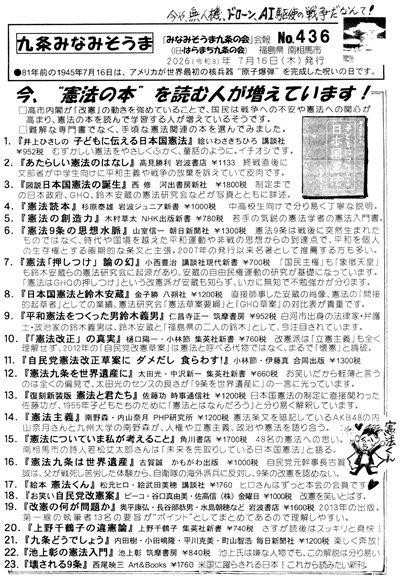 今や無人機、ドローン、AI駆使の戦争だなんて!
九条みなみそうま
『みなみそうま九条の会』会報
(旧はらまち九条の会)
No.436
福島県 南相馬市
2026(令和8)年 7月16日(木)発行
●81年前の1945年7月16日は、アメリカが世界最初の核兵器"原子爆弾"を完成した呪いの日です。
今、"憲法の本"を読む人が増えています!
□高市内閣が「改憲」の動きを強めていることで、国民は戦争への不安や憲法への関心が
高まり、憲法の本を読んで学習する人が増えているそうです。
□難解な専門書でなく、手頃な憲法関連の本を選んでみました。
1.『井上ひさしの 子どもに伝える日本国憲法』 絵いわさきちひろ 講談社
¥952 むずかしい憲法をやさしくふかく、童話のように。イチオシです。
2.『あたらしい憲法のはなし』 高見勝利 岩波書店 ¥1133 終戦直後に
文部省が中学生向けに平和主義や戦争の放棄を訴えていて皮肉です。
3.『図説日本国憲法の誕生』 西 修 河出書房新社 ¥1800税 制定まで
の日本政府、GHQ、鈴木安蔵の憲法研究会など写真とともに詳述。
4.『憲法読本』 杉原泰雄 岩波ジュニア新書 ¥1000税 中高校生向けで分り易く丁寧な説明。
5.『憲法の創造力』 木村草太 NHK出版新書 ¥780税 若手の気鋭の憲法学者の憲法入門書。
6.『憲法9条の思想水脈』 山室信一 朝日新聞社 ¥1300税 憲法9条は戦後に突然生まれた
ものではなく、時代や国境を越えた平和運動や非戦の思想からの到達点で、平和を個人
の生存権とする画期的な条文と主張。2007年の発行以来名著として推薦する方も多い。
7.『憲法「押しつけ」論の幻』 小西豊治 講談社現代新書 ¥760税 「国民主権」も「象徴天皇」
も鈴木安蔵らの憲法研究会に起源があり、安蔵の自由民権運動の研究が基礎になっています。
「憲法はGHQの押しつけ」という改憲派が安蔵も知らず、いかに無知で不勉強かが分ります。
8.『日本国憲法と鈴木安蔵』 金子勝 八朔社 ¥1200税 直接師事した安蔵の肖像、憲法の「間接
的起草者」としての業績、憲法研究会「憲法草案要綱」と「GHQ草案」の対比表が貴重です。
9.『平和憲法をつくった男鈴木義男』 仁昌寺正一 筑摩書房 ¥952税 白河市出身の法律家・弁護
士・政治家の鈴木義男は、鈴木安蔵と「福島県の二人の鈴木」として、今注目されています。
10.『「憲法改正」の真実』 樋口陽一・小林節 集英社新書 ¥1760税 改憲派は「立憲主義」も全く
理解せず、2012年の「自民党改憲草案」は憲法と呼べる代物ではなく、まるで「壊憲」と論破。
11.『自民党憲法改正草案に ダメだし 食らわす!』 小林節・伊藤真 合同出版 ¥1300税
12.『憲法九条を世界遺産に』 太田光・中沢新一 集英社新書 ¥660税 お笑いだから軽薄と言う
のは全くの偏見で、太田光のセンスの良さが「9条を世界遺産に」の一言に光っています。
13.『復刻新装版 憲法と君たち』 佐藤功 時事通信社 ¥1200税 日本国憲法の制定に直接関わった
佐藤功が、1955年子どもたちのために「憲法とはなんだろう」と分り易く解説しています。
14.『憲法主義』 南野森・内山奈月 PHP研究所 ¥1200税 憲法条文を暗記しているAKB48の内
山奈月さんと九州大学の南野森が、人権や立憲主義、政治や憲法を語り合う。
15.『憲法についていま私が考えること』 角川書店 ¥1700税 48名の憲法への思い。
南相馬市の詩人若松丈太郎さんは「未来を先取りしている日本国憲法」と語る。
16.『憲法九条は世界遺産』 古賀誠 かもがわ出版 ¥1000税 自民党元幹事長古賀
誠は、父が戦死し苦労した体験から、自衛隊の海外派兵に反対し、9条の改憲を認めない。
17.『絵本 憲法くん』 松元ヒロ・絵武田美穂 講談社 ¥1760 ヒロさんはずっと本会の会員です。
18.『お笑い自民党改憲案』 ピーコ・谷口真由美・佐高信(株)金曜日 ¥1000税 改憲を笑いとばす。
19.『改憲の何が問題か』 奥平康弘・長谷部恭男・水島朝穂など 岩波書店 ¥1600税 2013年の出版。
第一線の執筆者13名の要旨が"ポイント"としてまとめてあるので理解しやすい。
20.『上野千鶴子の選憲論』 上野千鶴子 集英社新書 ¥740税 さすが語彙はスッキリと爽快!
21.『九条どうでしょう』 内田樹・小田嶋隆・平川克美・町山智浩 毎日新聞社 ¥1200税 楽しく奔放!
22.『池上彰の憲法入門』 池上彰 筑摩書房 ¥840税 池上氏は嫌な人物でも、この解説は分り易い
23.『壊される9条』 西尾映三 Art&Books ¥1760 米国に蹂躙される日本!これから読みたい新刊。